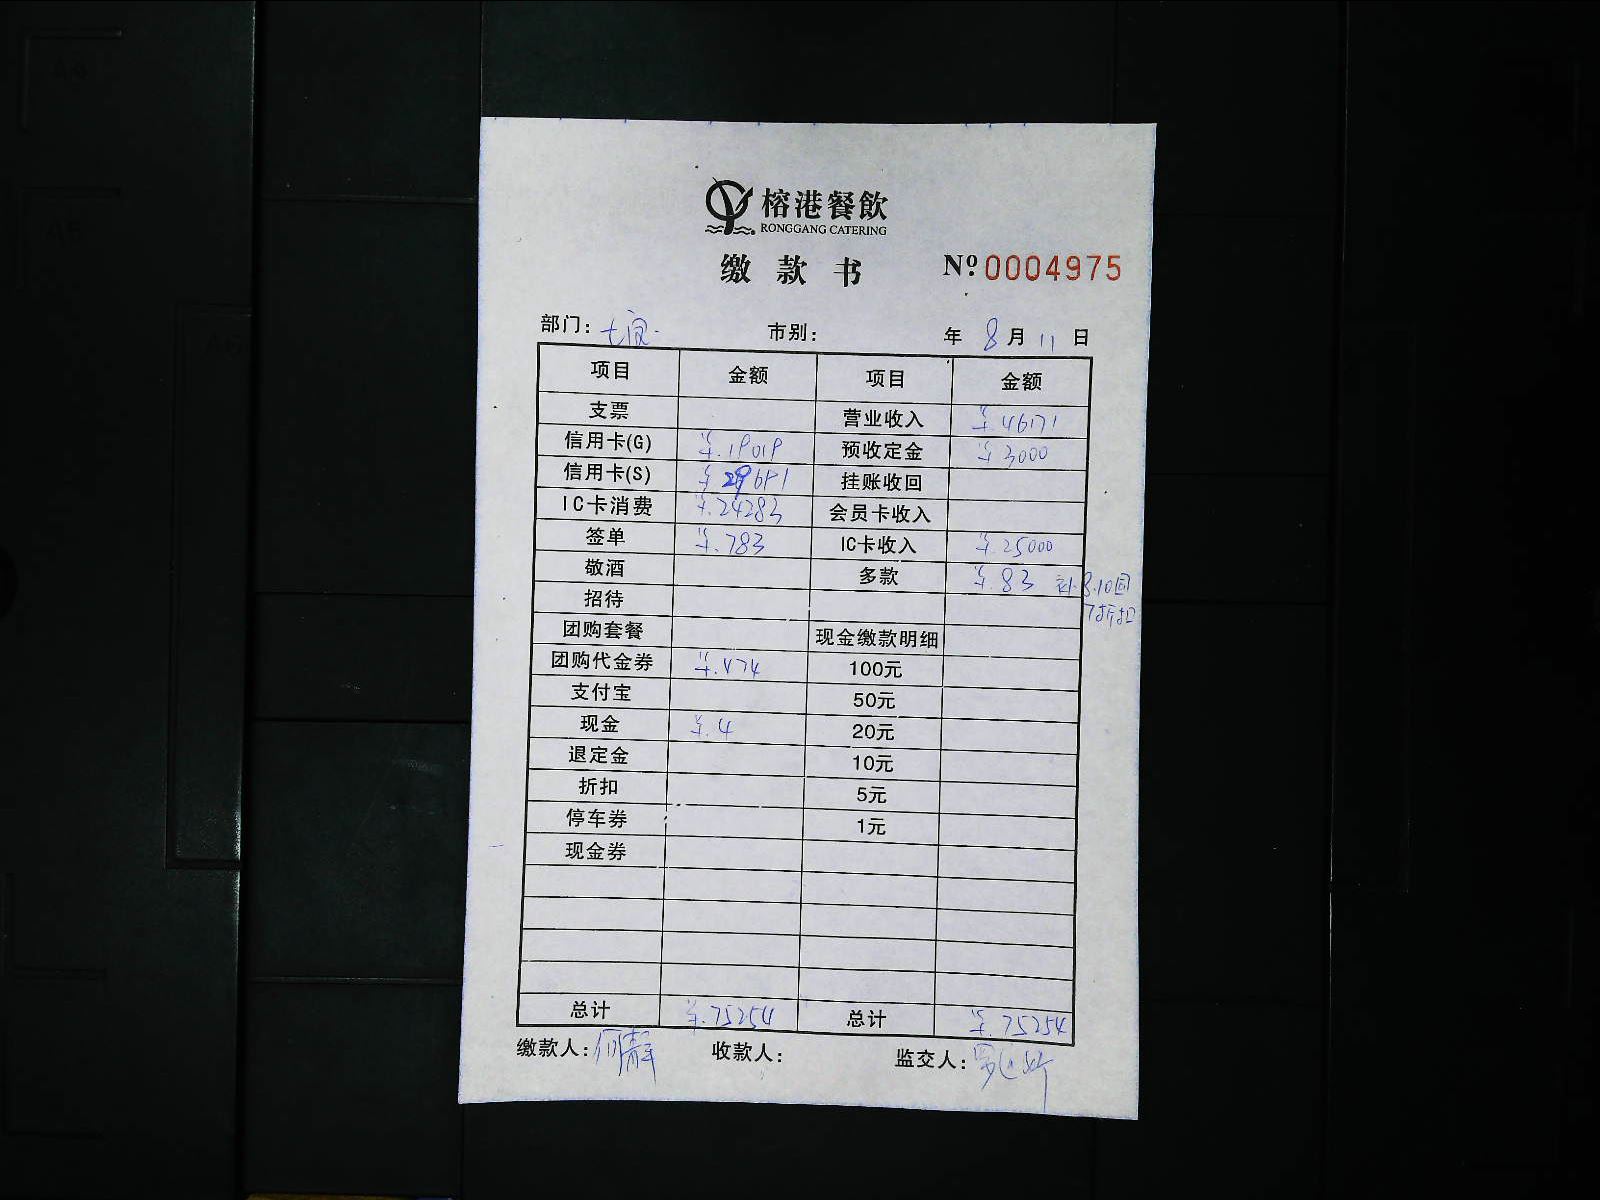 榕港餐飲
RONGGANG CATERING
缴款书 Nº 0004975
部门： 市别： 年 8 月 11 日
项目 金额 项目 金额
支票 营业收入 ¥.46171
信用卡(G) ¥.19019 预收定金 ¥3000
信用卡(S) ¥29691 挂账收回
IC卡消费 ¥.24283 会员卡收入
签单 ¥.783 IC卡收入 ¥.25000
敬酒 多款 ¥.83 补8.10团
7折扣
招待
团购套餐 现金缴款明细
团购代金券 ¥.474 100元
支付宝 50元
现金 ¥.4 20元
退定金 10元
折扣 5元
停车券 1元
现金券
总计 ¥.75254 总计 ¥.75254
缴款人：何静 收款人： 监交人：